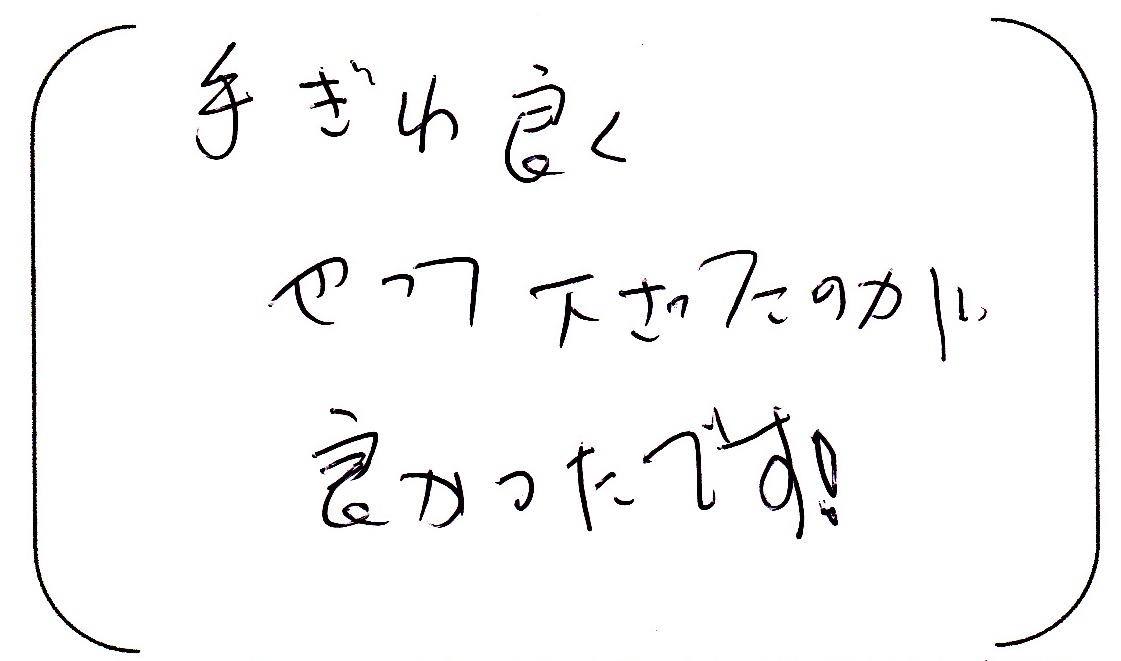 手ぎわ良く
やって下さったのが
良かったです!